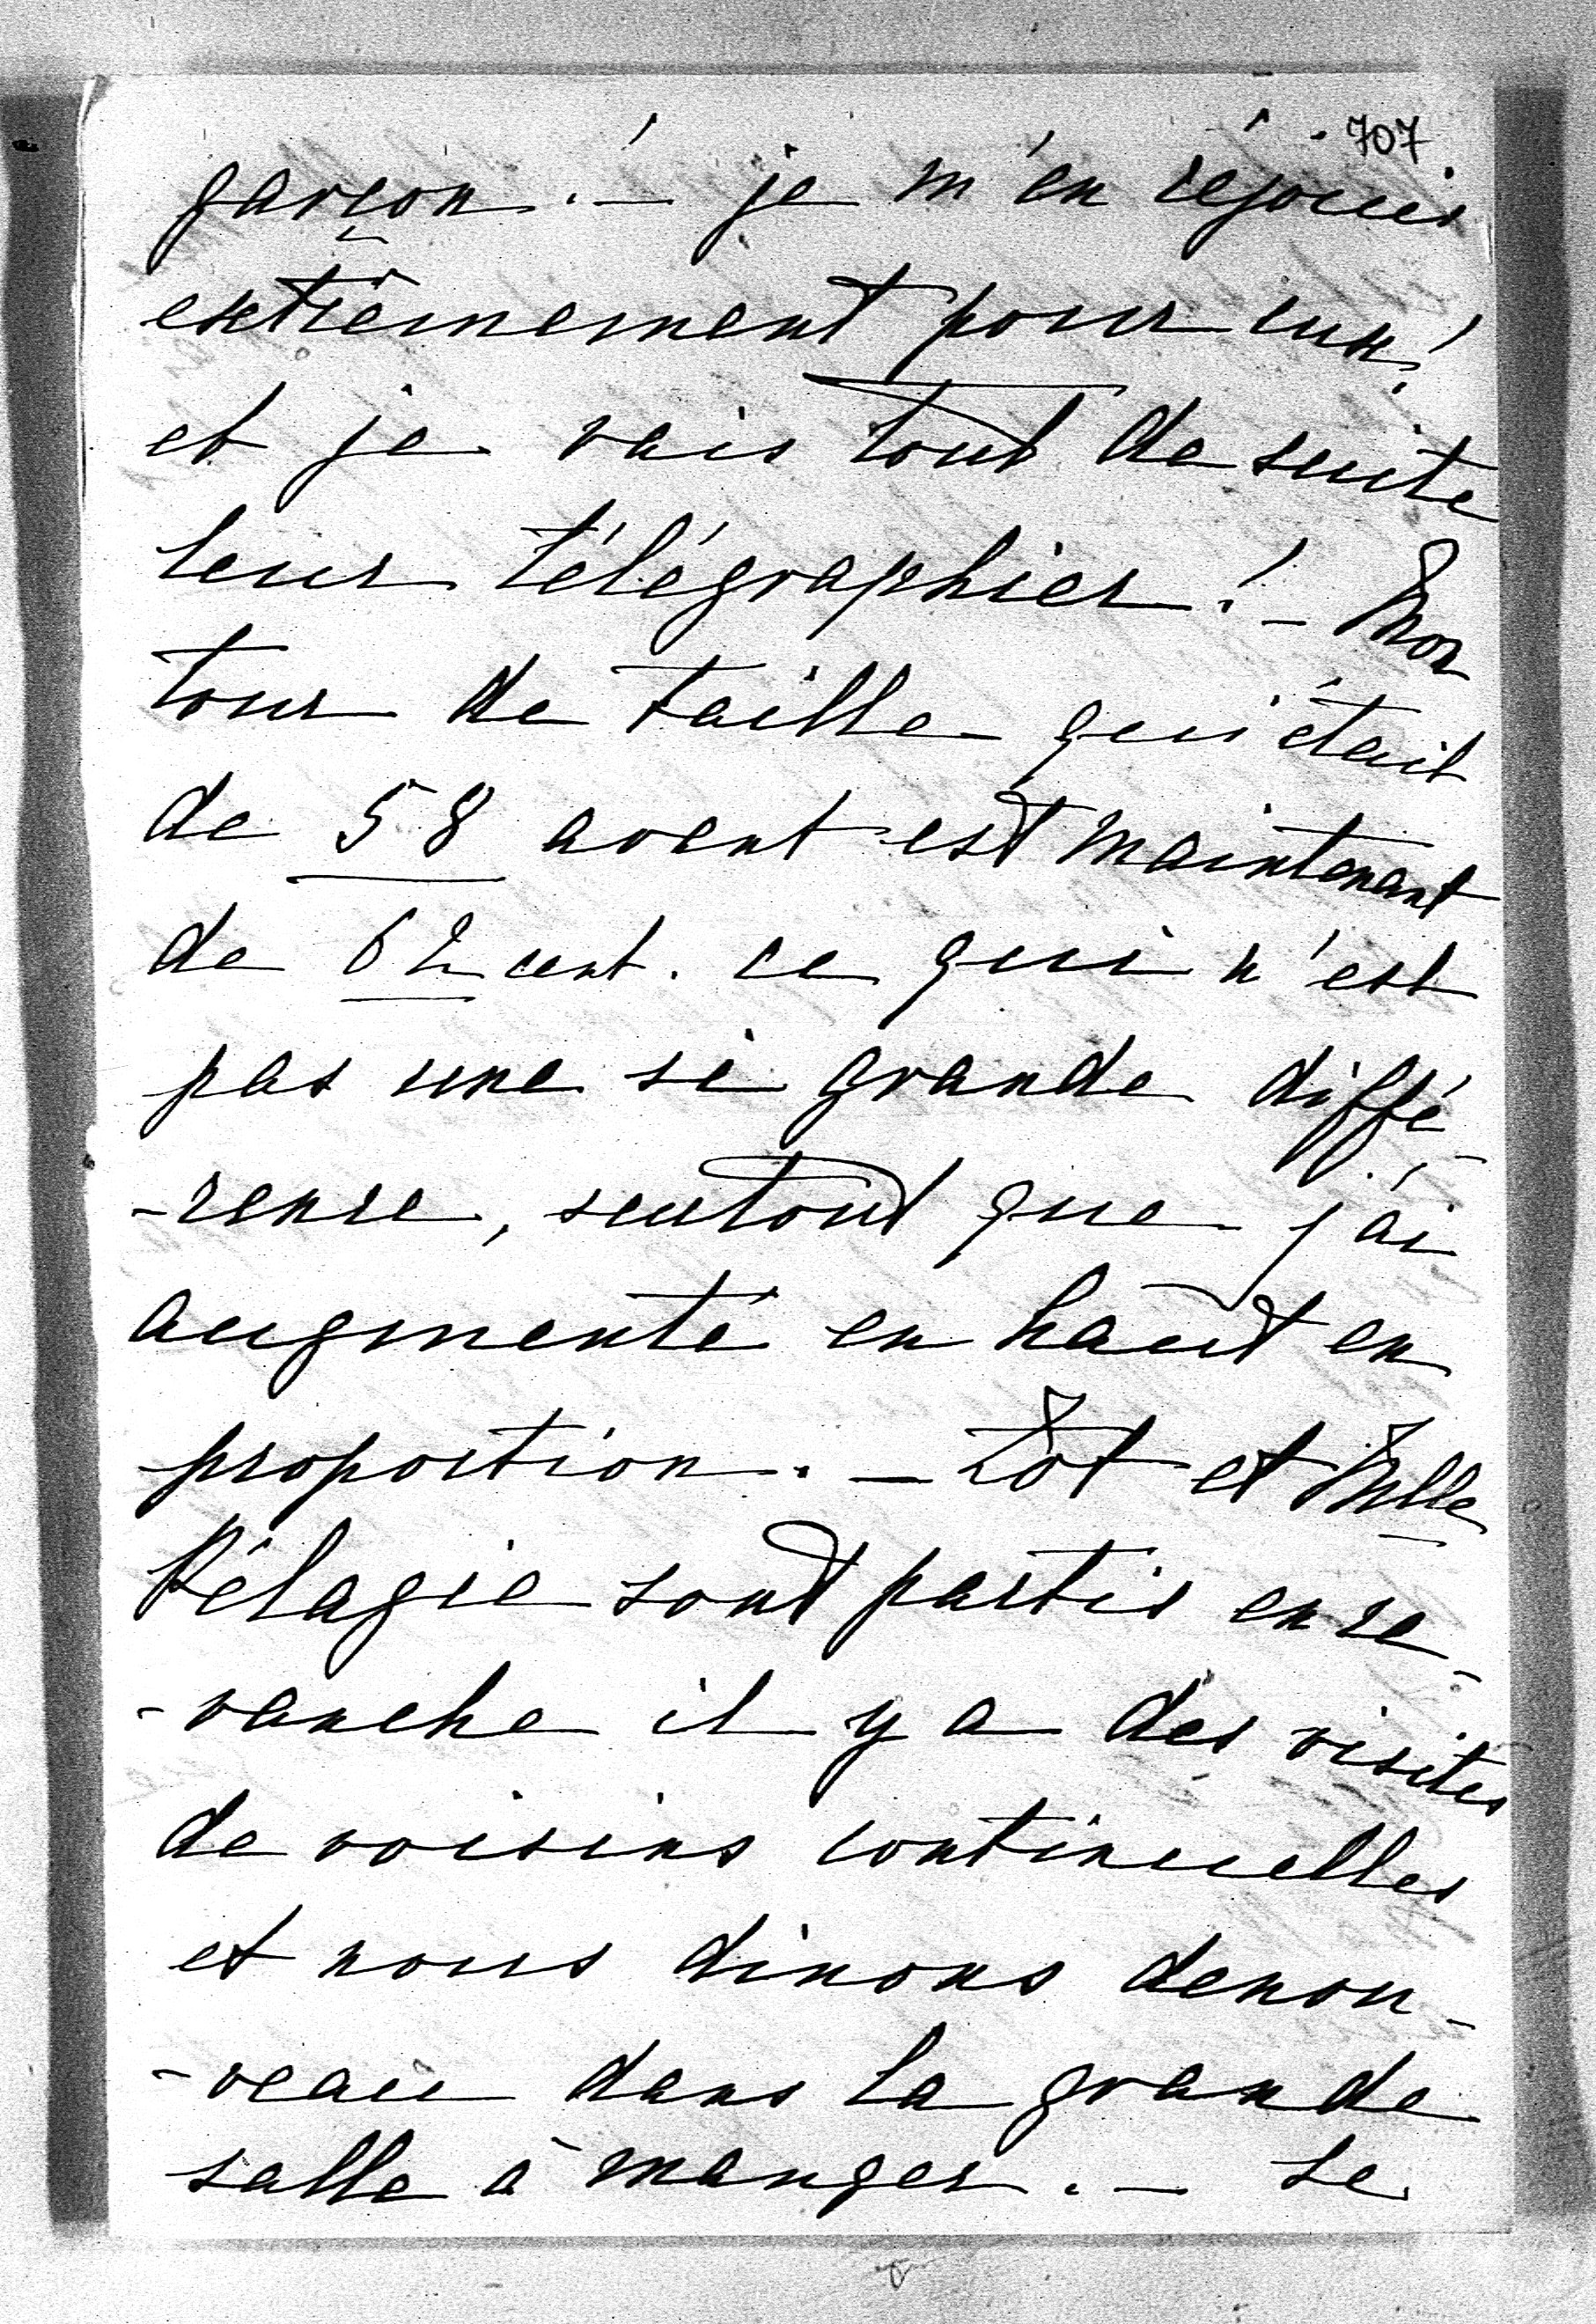 707
garçon. — je m'en réjouis
extrêmement pour eux!
et je vais tout de suite
leur télégraphier! — Mon
tour de taille qui était
de 58 avant est maintenant
de 62 cent. ce qui n'est
pas une si grande diffé-
-rence, surtout que j'ai
augmenté en haut en
proportion. — Lot et Mlle
Pélagie sont partis en re-
-vanche il y a des visites
de voisins continuelles
et nous dinons denou-
-veau dans la grande
salle à manger. — Le